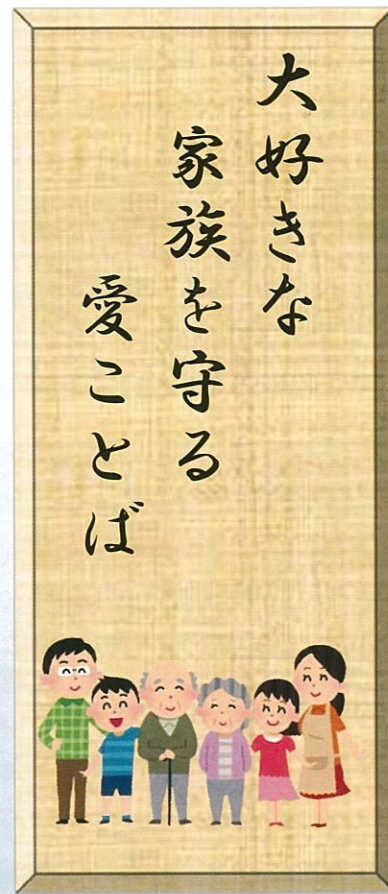 大好きな
家族を守る
愛ことば